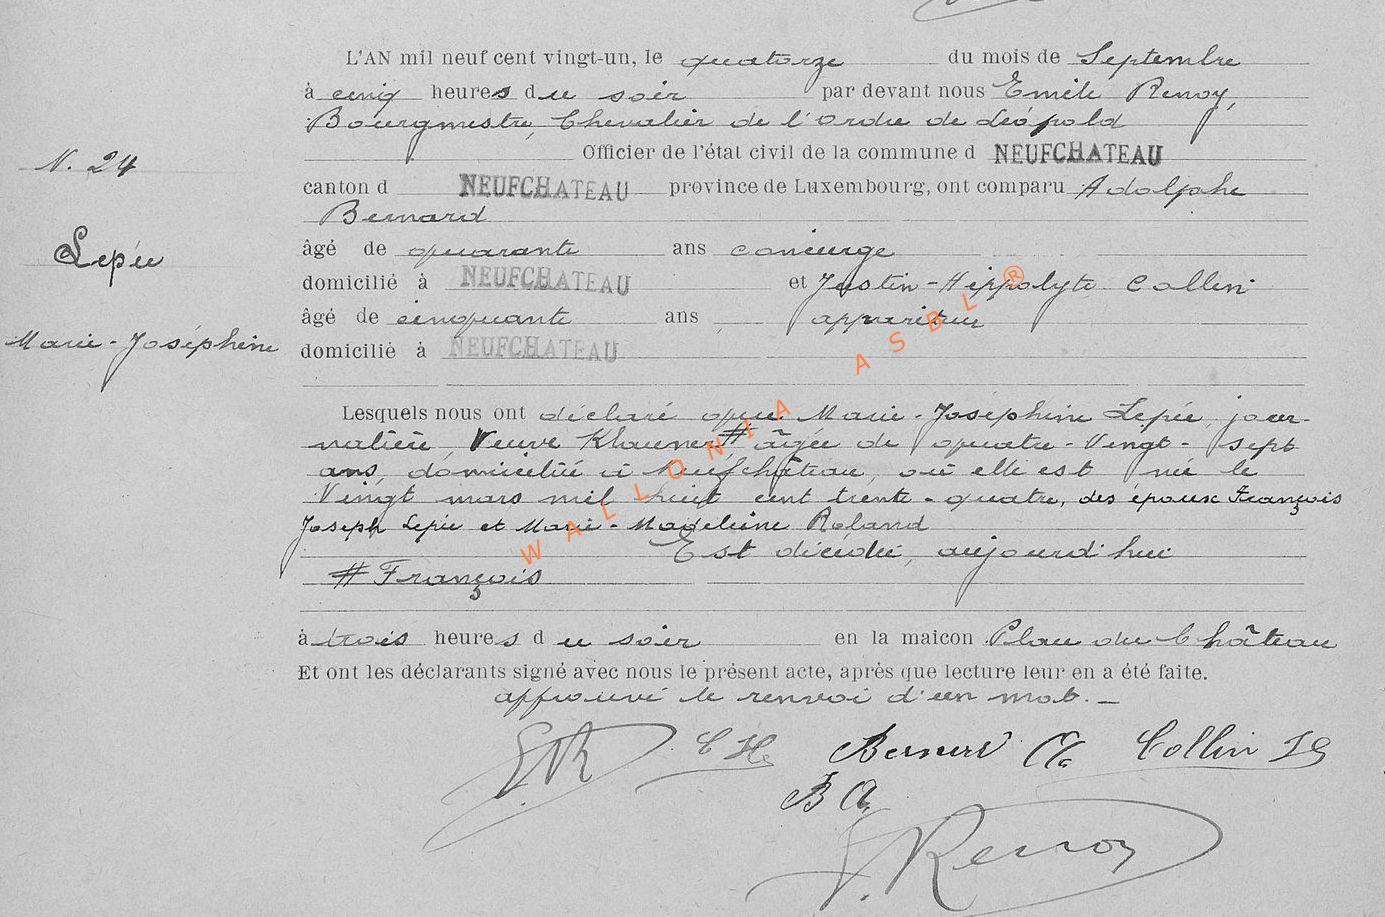 L'AN mil neuf cent vingt-un, le quatorze du mois de Septembre
à cinq heures du soir par devant nous Emile Renoy,
Bourgmestre, Chevalier de l'Ordre de Léopold
Officier de l'état civil de la commune d NEUFCHATEAU
N. 24
canton d NEUFCHATEAU province de Luxembourg, ont comparu Adolphe
Bernard
Lepée
âgé de quarante ans concierge
domicilié à NEUFCHATEAU et Justin-Hippolyte Collin
âgé de cinquante ans appariteur
Marie-Joséphine
domicilié à NEUFCHATEAU
Lesquels nous ont déclaré que Marie-Joséphine Lepée, jour-
nalière, Veuve Klauner # âgée de quatre-Vingt-sept
ans, domiciliée à Neufchâteau, où elle est née le
Vingt mars mil huit cent trente-quatre, des époux François
Joseph Lepée et Marie-Madeleine Roland
Est décédée, aujourd'hui
# François
à trois heures du soir en la maison Place du Château
Et ont les déclarants signé avec nous le présent acte, après que lecture leur en a été faite.
approuvé le renvoi d'un mot.—
ER Bernard Collin
B A
E. Renoy
WALLONIA ASBL®